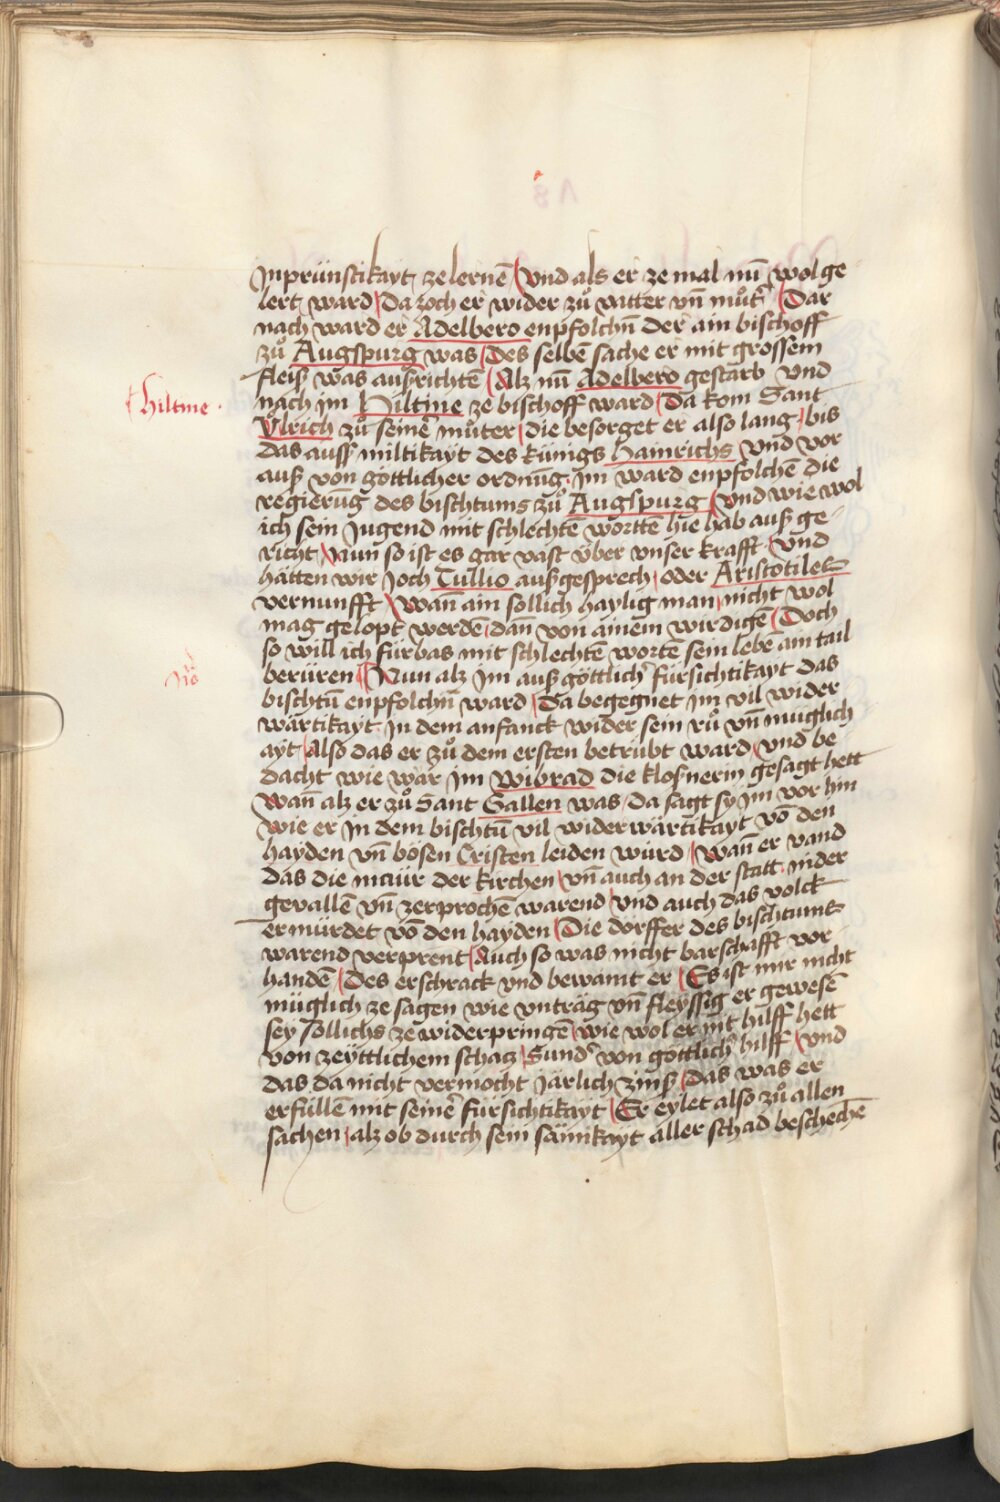 Inprünstikayt ze lernē Vnd als er ze mal nū wol ge
lert ward Da zoch er wider zů vatter vn̄ můtˀ Dar
nach ward er Adelbero enpfolchn̄ der ain bischoff
zů Augspurg was Des selbē sache er mit grossem
fleiß was ausrichtē Alz nū Adelbero gestarb vnd
nach jm Hiltine ze bischoff ward Da kom Sant
Hiltine
Vlrich zů seinē můter die besorget er also lang bis
das auß miltikayt des künigs Hainrichs Vnd vor
auß von göttlicher ordnūg Im ward enpfolchē die
regierūg des bischtums zů Augspurg Vnd wie wol
ich sein Jugend mit schlechtē wortten hie hab auß ge
richt Nun so ist es gar vast v̈ber vnser krafft Vnd
hätten wir Joch Tullio außgesprech oder Aristotiles
vernunfft Wann̄ ain sollich haylig man nicht wol
mag gelopt werdē dan̄ von ainem wirdigē Doch
so will ich fürbas mit schlechtē wortē sein lebē ain tail
berüren Nun alz Im auß göttlichˀ fürsichtikayt das
bischtū enpfolchn̄ ward Da begegnet im vil wider
wärtikayt In dem anfanck wider sein rů vn̄ müglich
ayt Also das er zů dem ersten betrübt ward vnd be
dacht wie wär Im Wibrad die kloßnerin gesagt hett
Wan̄ alz er zů Sant Gallen was Da sagt sy im vor hin
wie er in dem bischtū vil widerwärtikayt vō den
hayden vn̄ bösen Cristen leiden würd Wan̄ er vand
das die maür der kirchen vn̄ auch an der statt nider
gevallē vn̄ zerprochē warend vnd auch das volck
ermürdet vō den hayden Die dörffer des bischtums
warend verprent Auch so was nicht barschafft vor
handē Des erschrack vnd bewaint er Es ist mir nicht
müglich ze sagen wie vnträg vn̄ fleyssig er gewesē
sey sollichs ze widerpringē wie wol er nit hilff hett
von zeyttlichem schatz Sundˀ von göttlichˀ hilff vnd
das da nicht vermocht järlich zinß Das was er
erfüllē mit seinē fürsichtikayt Er eylet also zů allen
sachen alz ob durch sein sämikayt aller schad beschechē